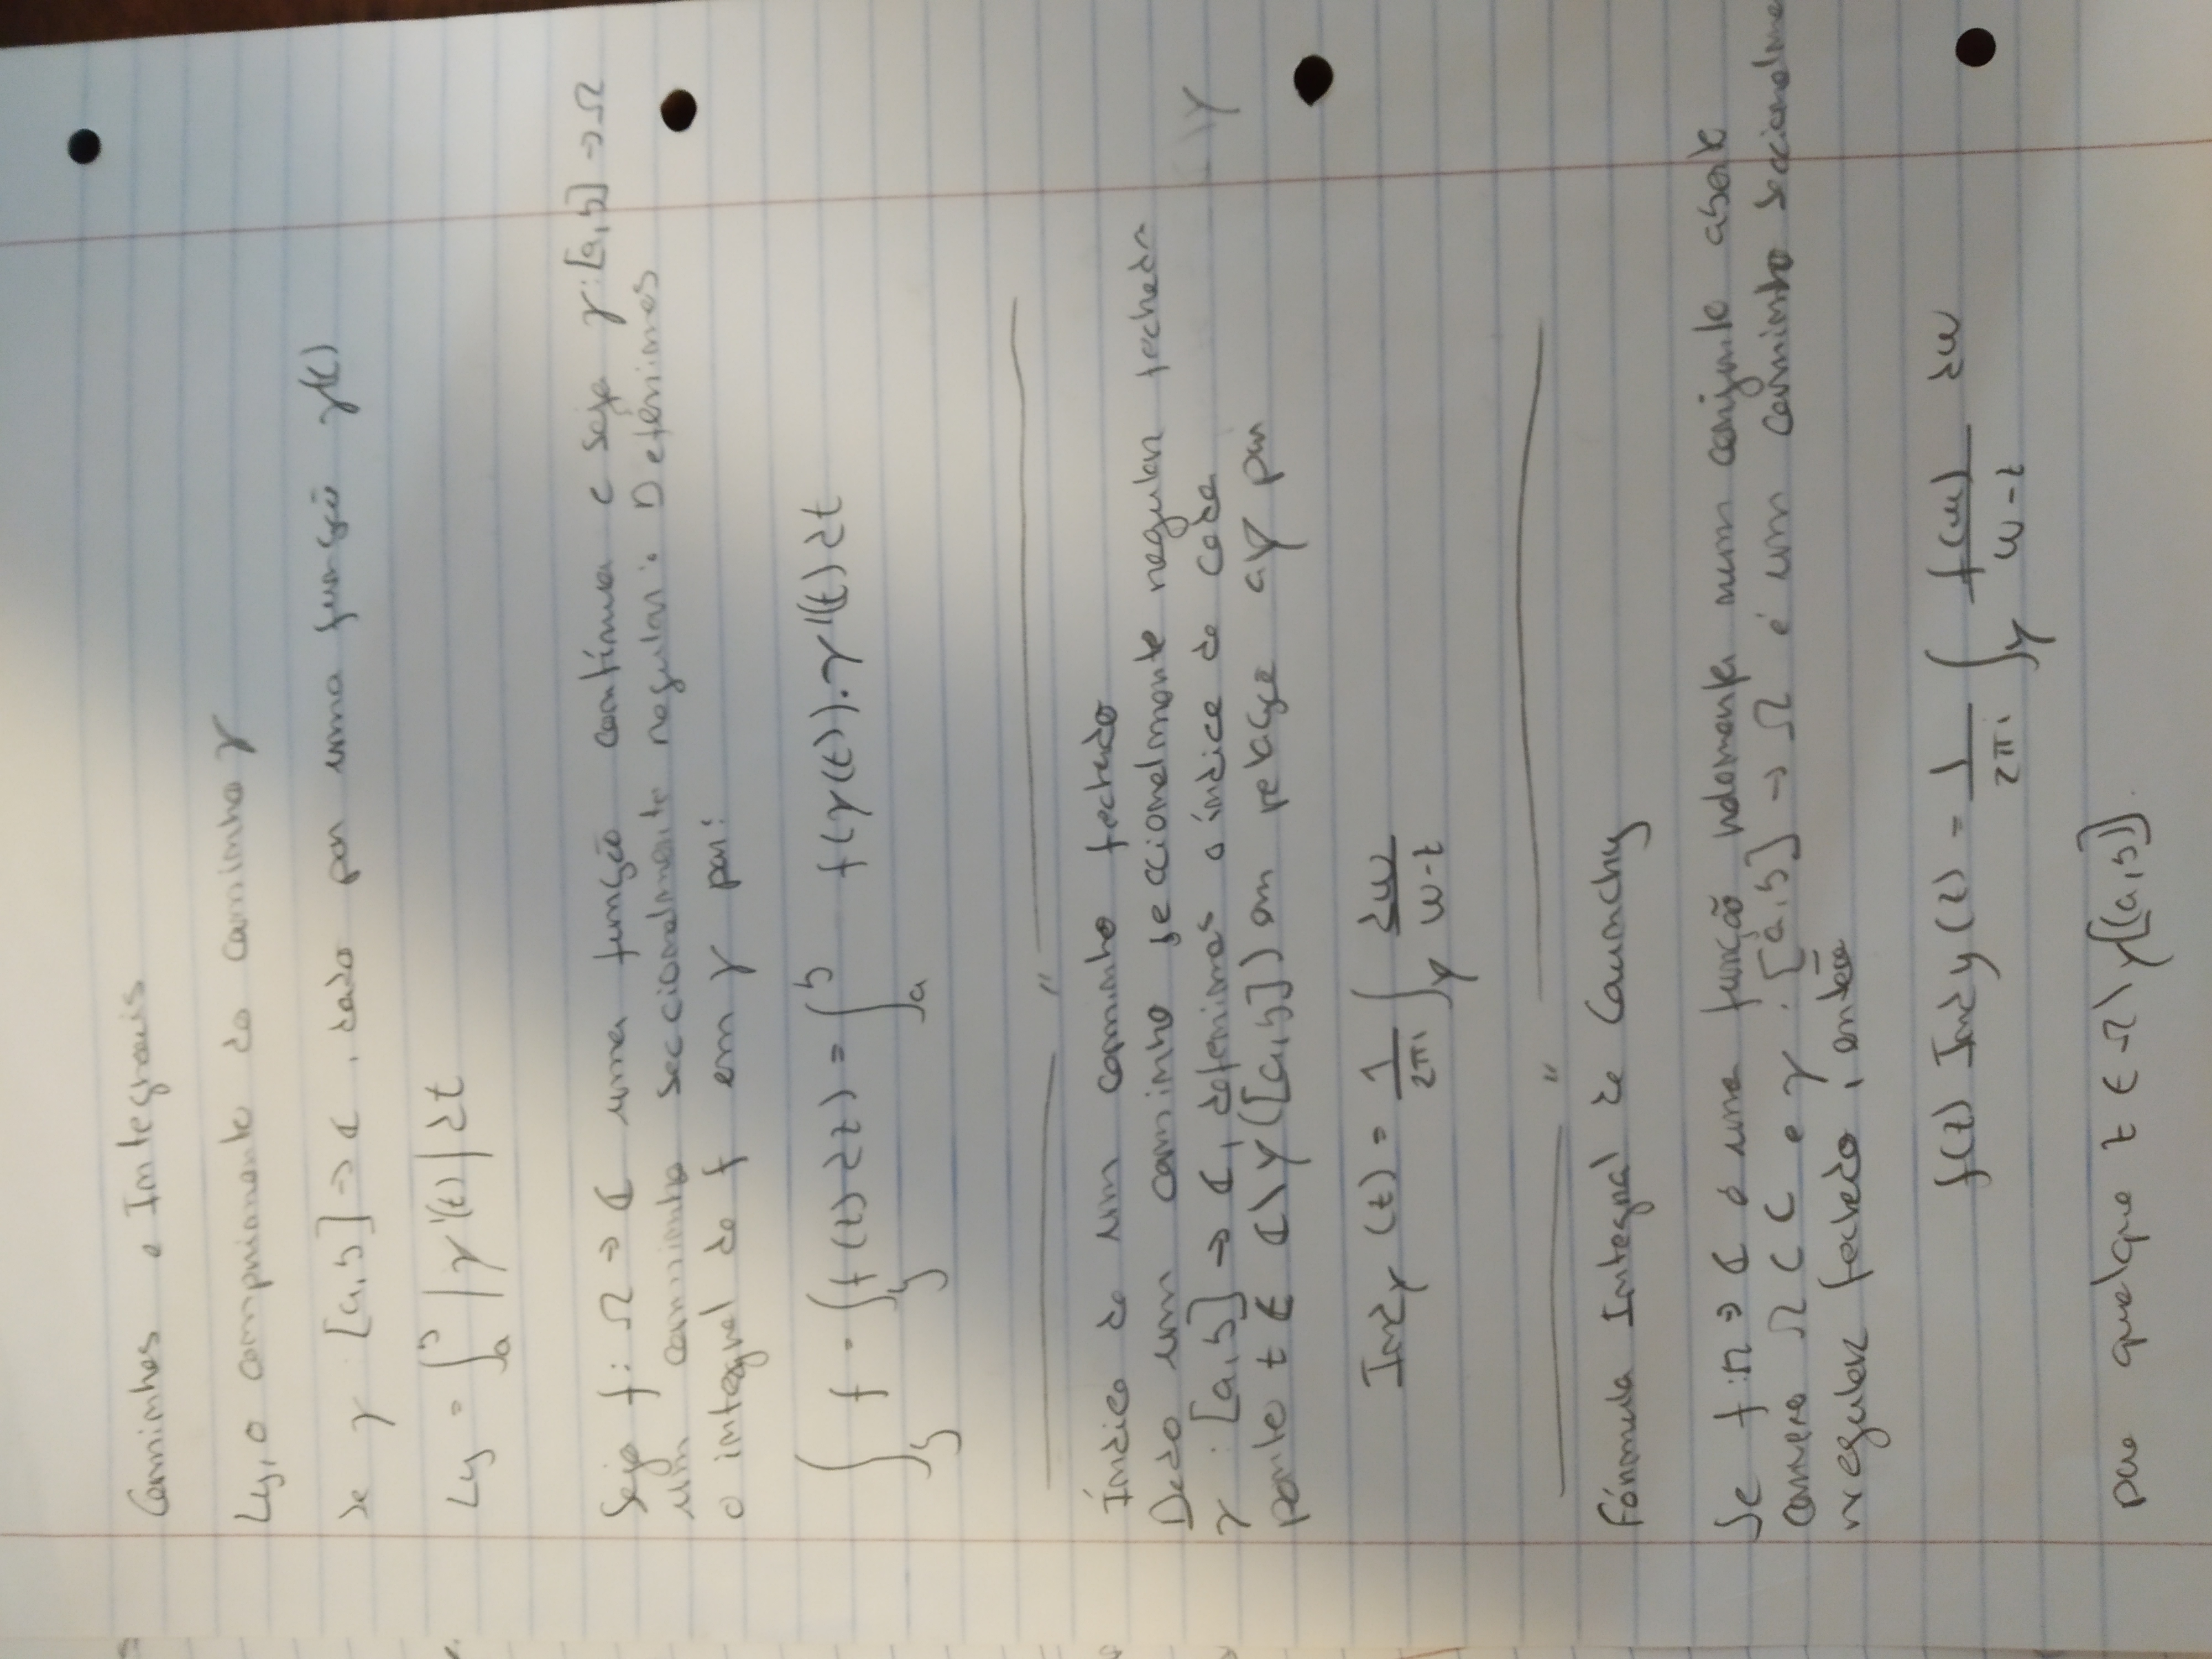 Caminhos e Integrais
Lγ, o comprimento do caminho γ
se γ : [a,b] → ℂ, dado por uma função γ(t)
Lγ = ∫_a^b |γ'(t)| dt
Seja f : Ω → ℂ uma função contínua e seja γ : [a,b] → Ω
um caminho seccionalmente regular. Definimos
o integral de f em γ por:
∫_γ f = ∫_γ f(z) dz) = ∫_a^b f(γ(t)).γ'(t) dt
"
Índice de um caminho fechado
Dado um caminho seccionalmente regular fechado
γ : [a,b] → ℂ, definimos o índice de cada
ponto z ∈ ℂ\γ([a,b]) em relação a γ por
Ind_γ (z) = 1/2πi ∫_γ dw/w-z
"
Fórmula Integral de Caunchy
Se f : Ω → ℂ é uma função holomorfa num conjunto aberto
convexo Ω ⊂ ℂ e γ : [a,b] → Ω é um caminho seccionalme
regular fechado, então
f(z) Ind γ(z) = 1/2πi ∫_γ f(w)/w-z dw
para qualque z ∈ Ω\γ([a,b]).